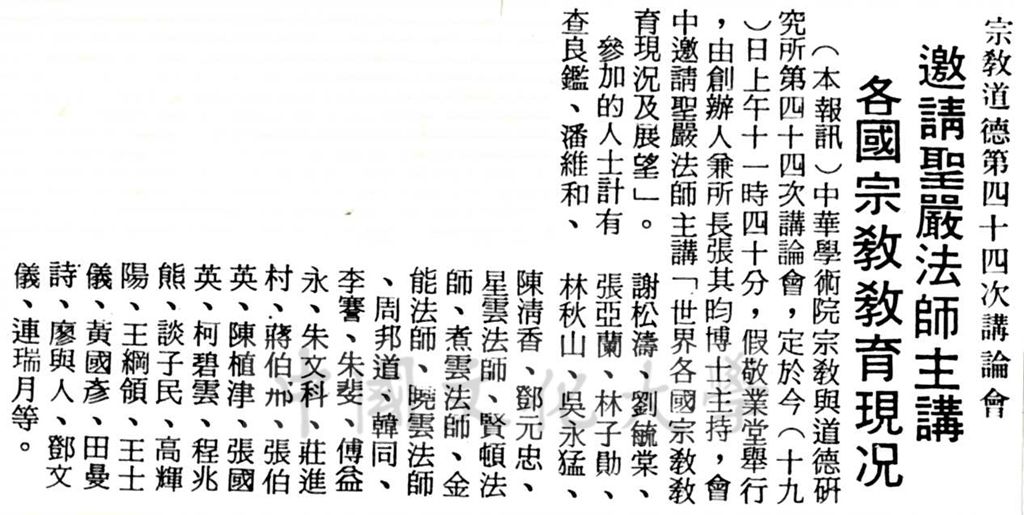 宗教道德第四十四次講論會
邀請聖嚴法師主講
各國宗教教育現況
（本報訊）中華學術院宗教與道德研
究所第四十四次講論會，定於今（十九
）日上午十一時四十分，假敬業堂舉行
，由創辦人兼所長張其昀博士主持，會
中邀請聖嚴法師主講「世界各國宗教教
育現況及展望」。
參加的人士計有
查良鑑、潘維和、
謝松濤、劉毓棠、
張亞蘭、林子勛、
林秋山、吳永猛、
陳清香、鄧元忠、
星雲法師、賢頓法
師、煮雲法師、金
能法師、曉雲法師
、周邦道、韓同、
李謇、朱斐、傅益
永、朱文科、莊進
村、蔣伯邢、張伯
英、陳植津、張國
英、柯碧雲、程兆
熊、談子民、高輝
陽、王綱領、王士
儀、黃國彥、田曼
詩、廖與人、鄧文
儀、連瑞月等。
中國文化大學